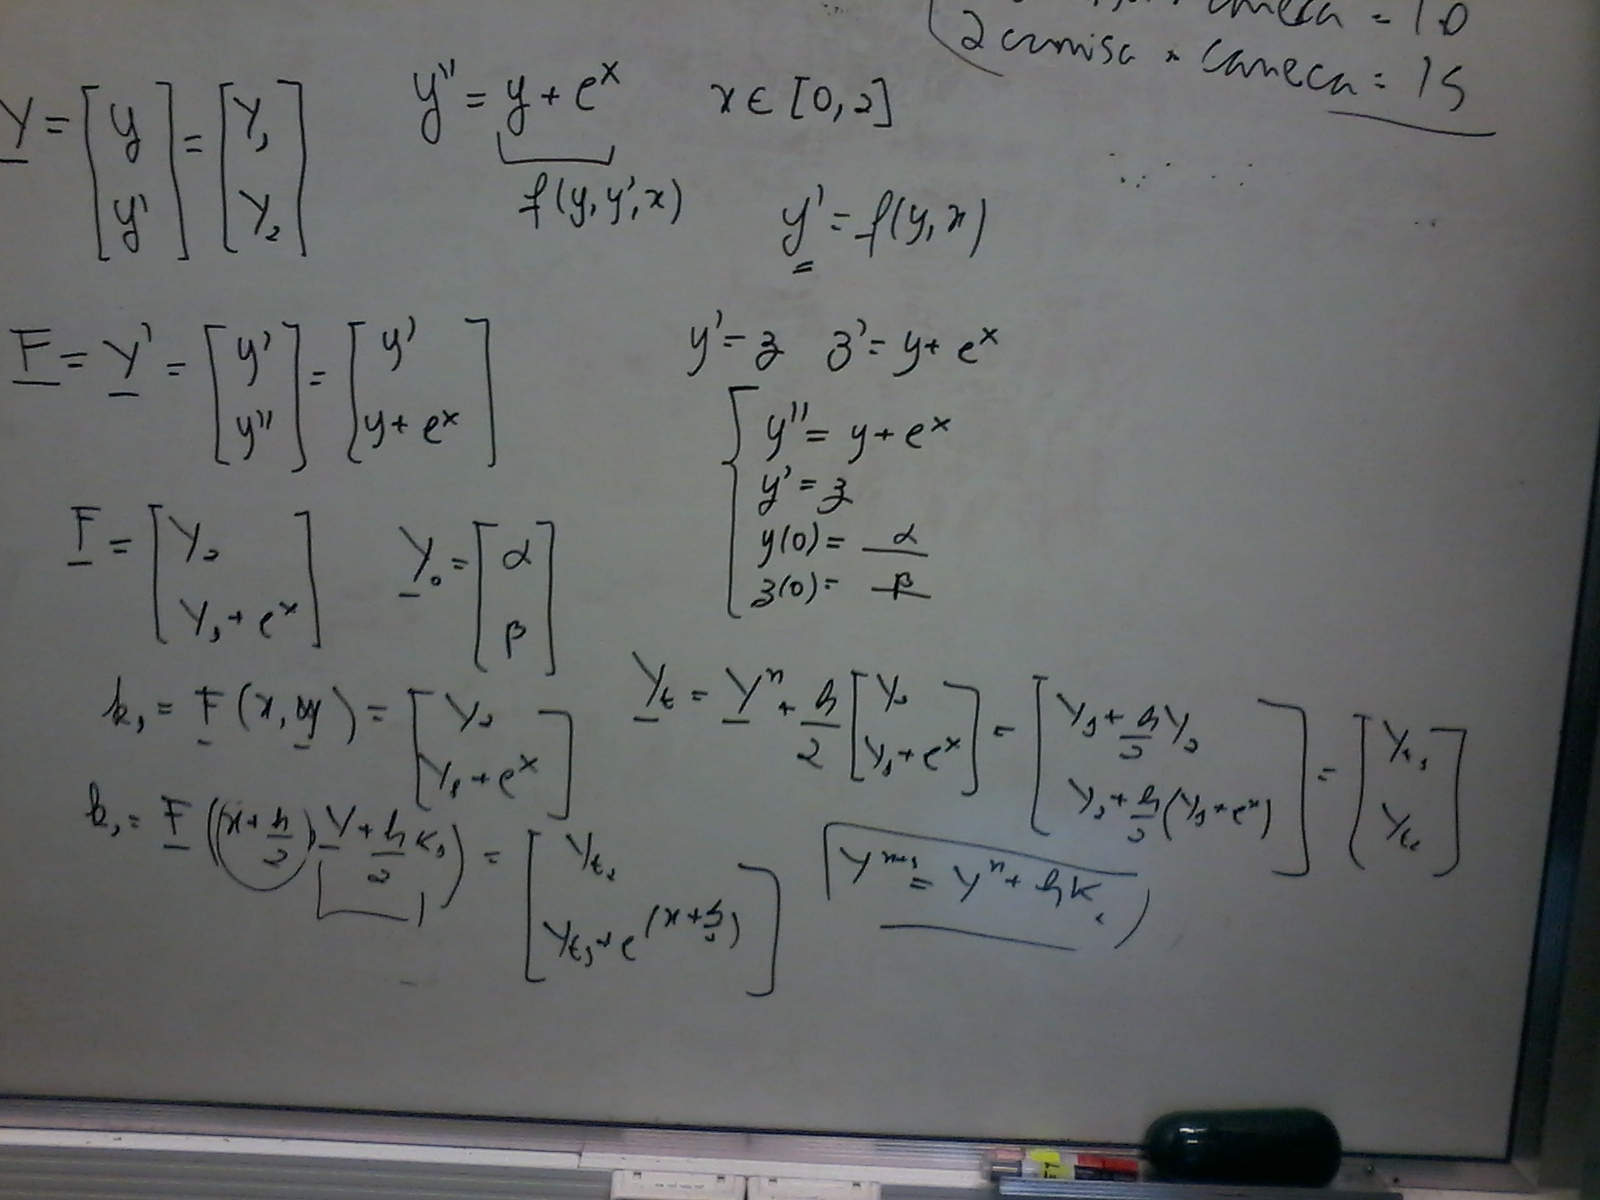 camisa + caneca = 10
2 camisa + caneca = 15
Y = [y y'] = [Y₁ Y₂]
y'' = y + eˣ x ∈ [0,2]
f(y,y',x)
y' = f(y,x)
F = Y' = [y' y''] = [y' y+eˣ]
y' = z z' = y + eˣ
y'' = y + eˣ
y' = z
y(0) = α
z(0) = β
F = [Y₂ Y₁ + eˣ] Y₀ = [α β]
k₁ = F(x, y) = [Y₂ Y₁ + eˣ]
Yₜ = Yⁿ + h/2 [Y₂ Y₁ + eˣ] = [Y₁ + h/2 Y₂ Y₂ + h/2 (Y₁ + eˣ)] = [Yₜ₁ Yₜ₂]
k₂ = F((x + h/2), Y + h/2 k₁) = [Yₜ₂ Yₜ₁ + e^(x + h/2)]
Yⁿ⁺¹ = Yⁿ + h k₂